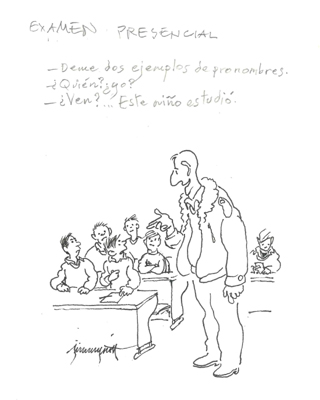 EXAMEN PRESENCIAL
—Deme dos ejemplos de pronombres.
—¿Quién? ¿yo?
—¿Ven?... Este niño estudió.
jimmy scott